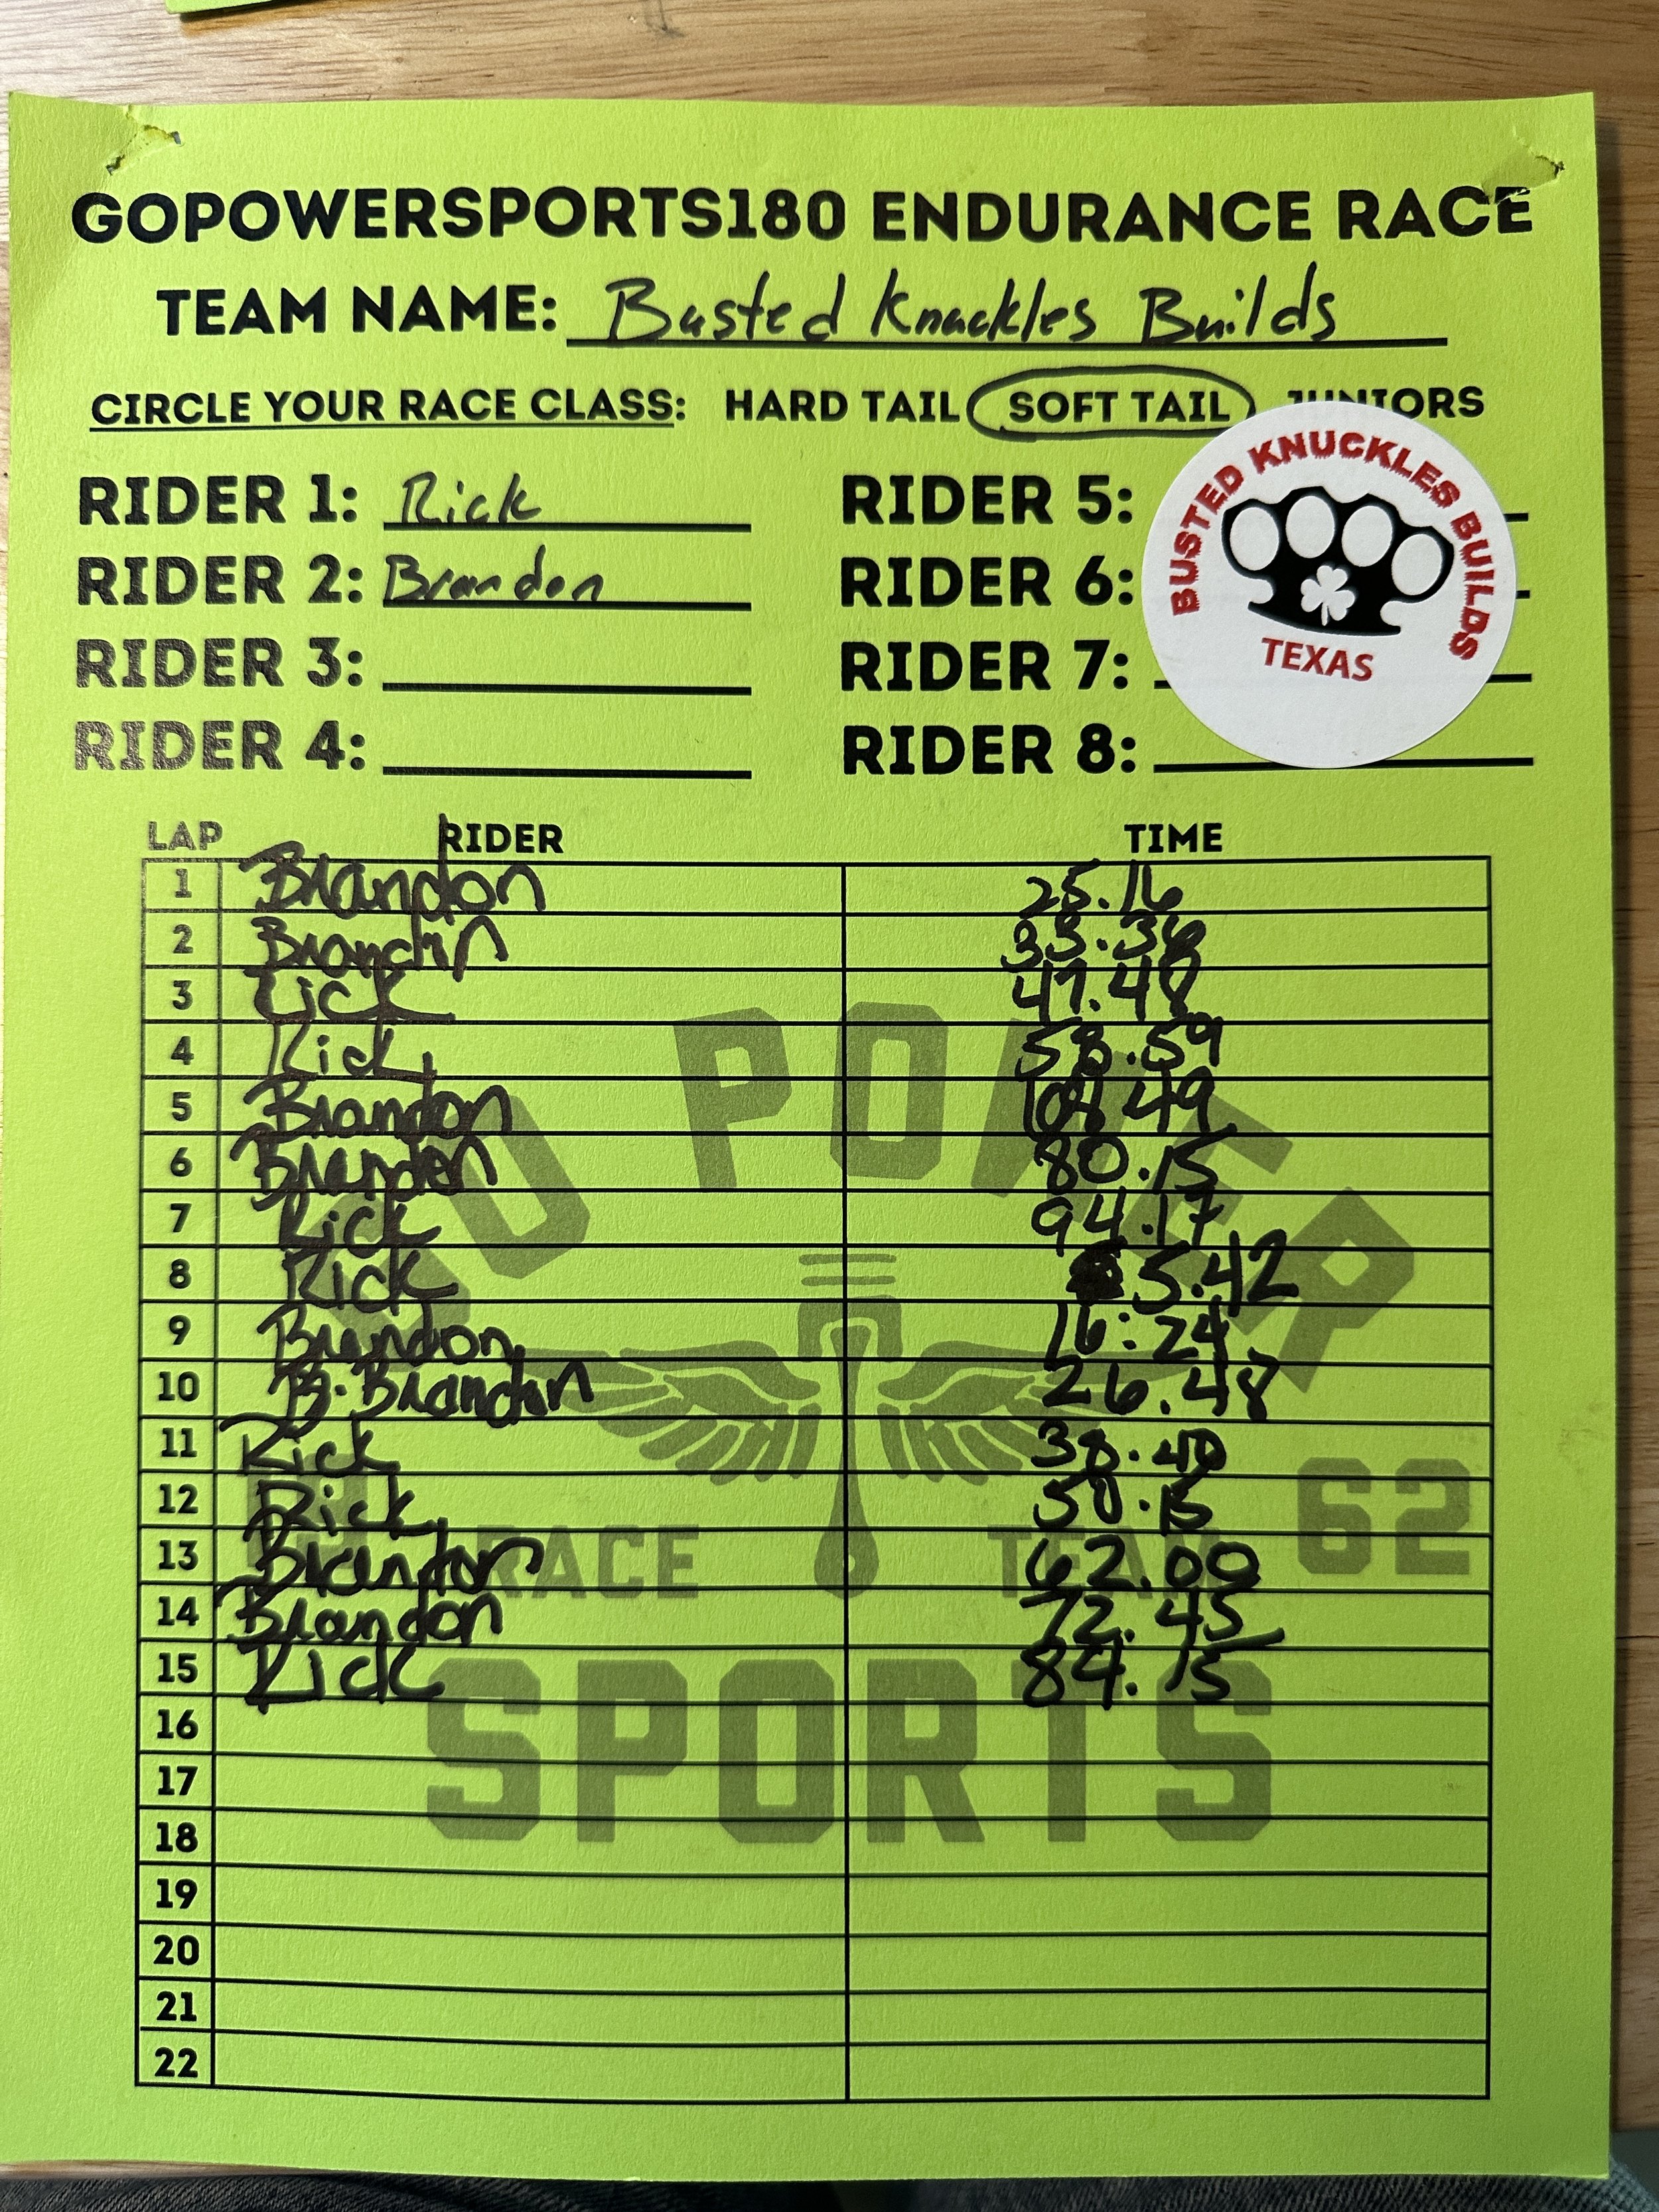 GOPOWERSPORTS180 ENDURANCE RACE
TEAM NAME: Busted Knuckles Builds
CIRCLE YOUR RACE CLASS: HARD TAIL SOFT TAIL JUNIORS
RIDER 1: Rick RIDER 5:
RIDER 2: Brandon RIDER 6:
RIDER 3: RIDER 7:
RIDER 4: RIDER 8:
BUSTED KNUCKLES BUILDS
TEXAS
LAP RIDER TIME
1 Brandon 25.16
2 Brandon 35.36
3 Rick 47.48
4 Rick 58.59
5 Brandon 49
6 Brandon 80.15
7 Rick 94.17
8 Rick 5.42
9 Brandon 16:24
10 B. Brandon 26.48
11 Rick 38.40
12 Rick 50.15
13 Brandon 62.00
14 Brandon 72.45
15 Rick 84.15
16
17
18
19
20
21
22
GO POWER
RACE TEAM 62
SPORTS